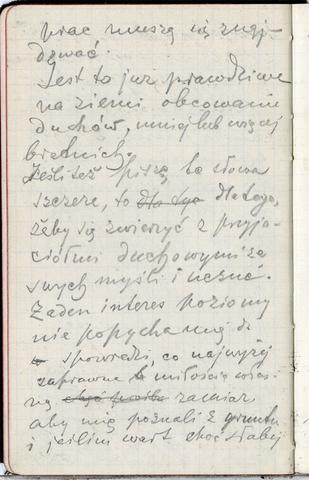 prac muszą się znaj-
dować.
Jest to już prawdziwe
na ziemi obcowanie
duchów, mniej lub więcej
bratnich.
Jeśli też piszę te słowa
szczere, to dla tego dlatego,
żeby się zwierzyć z przyja-
ciółmi duchowymi ze
swych myśli i uczuć.
Żaden interes poziomy
nie popycha mię do
spowiedzi, co najwyżej
zaprawne miłością włas-
ną zamiar
aby mię poznali z gruntu
i jeślim wart choć słabej